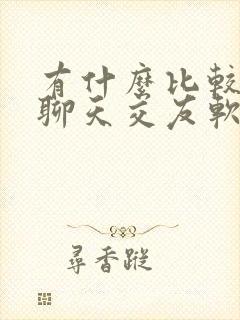 有什麼比較
聊天交友軟
尋香蹤